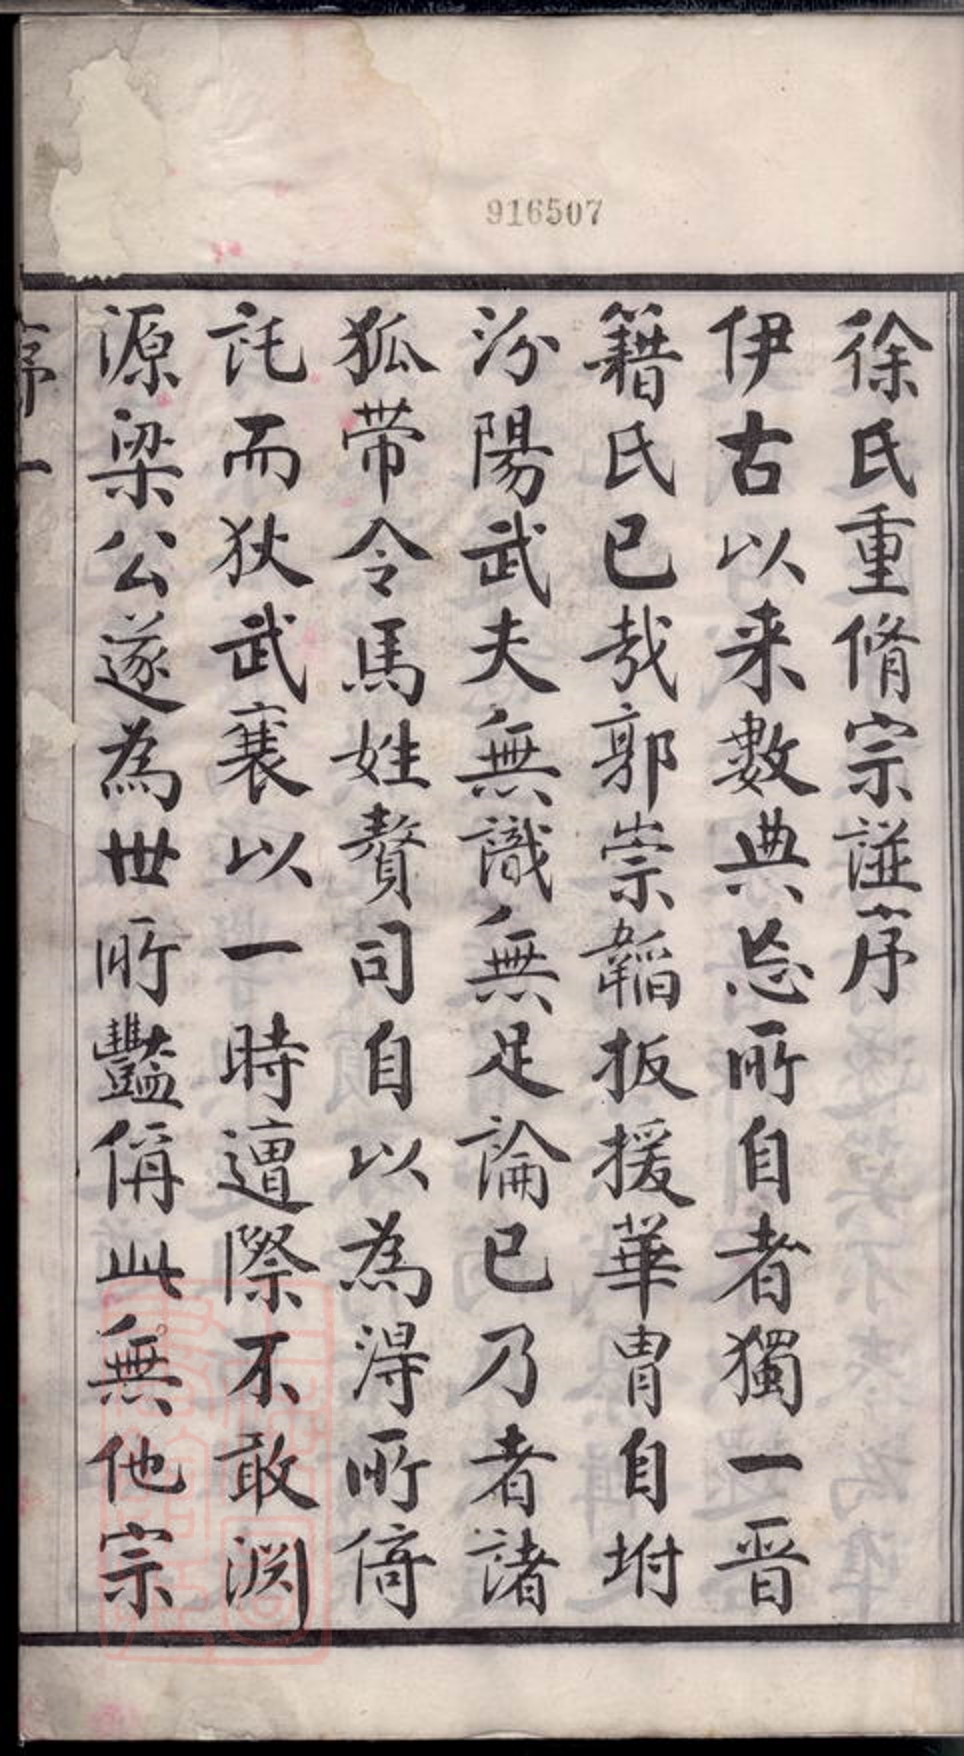 916507
徐氏重脩宗譜序
伊古以来數典忘所自者獨一晋
籍氏已㢤郭崇韜扳援華胄自坿
汾陽武夫無識無足論已乃者諸
狐帯令馬姓贅司自以為淂所倚
託而狄武襄以一時遭際不敢渊
源梁公遂為世所豔偁此無他宗
序 一